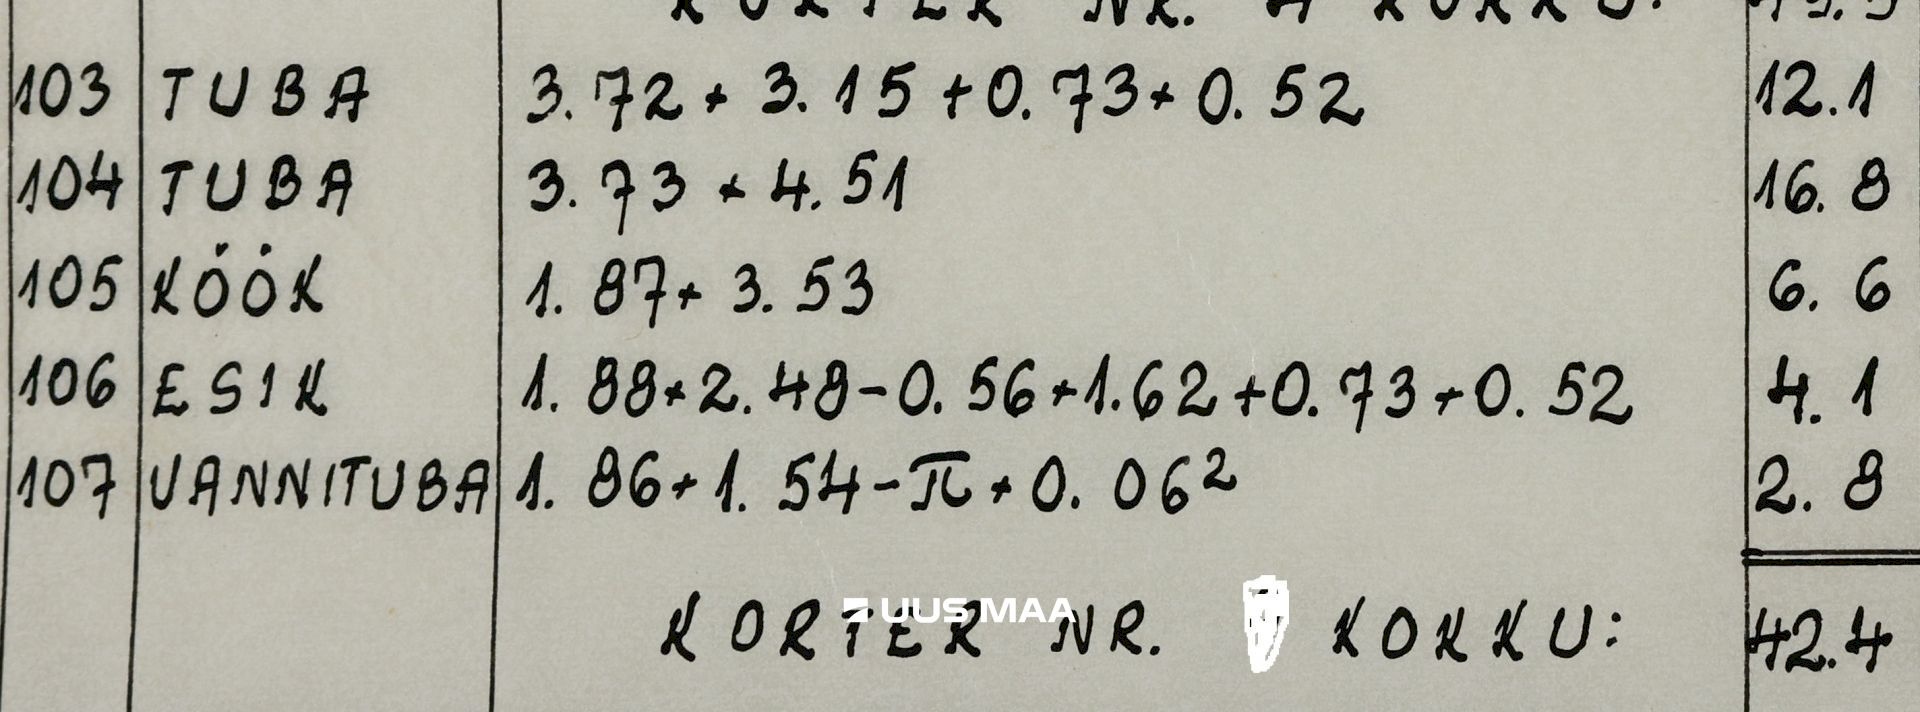 KORTER NR. 4 KOKKU:
103 TUBA 3.72 * 3.15 + 0.73 * 0.52 12.1
104 TUBA 3.73 * 4.51 16.8
105 KÖÖK 1.87 * 3.53 6.6
106 ESIK 1.88 * 2.48 - 0.56 * 1.62 + 0.73 * 0.52 4.1
107 VANNITUBA 1.86 * 1.54 - π * 0.06² 2.8
UUS MAA
KORTER NR. KOKKU: 42.4